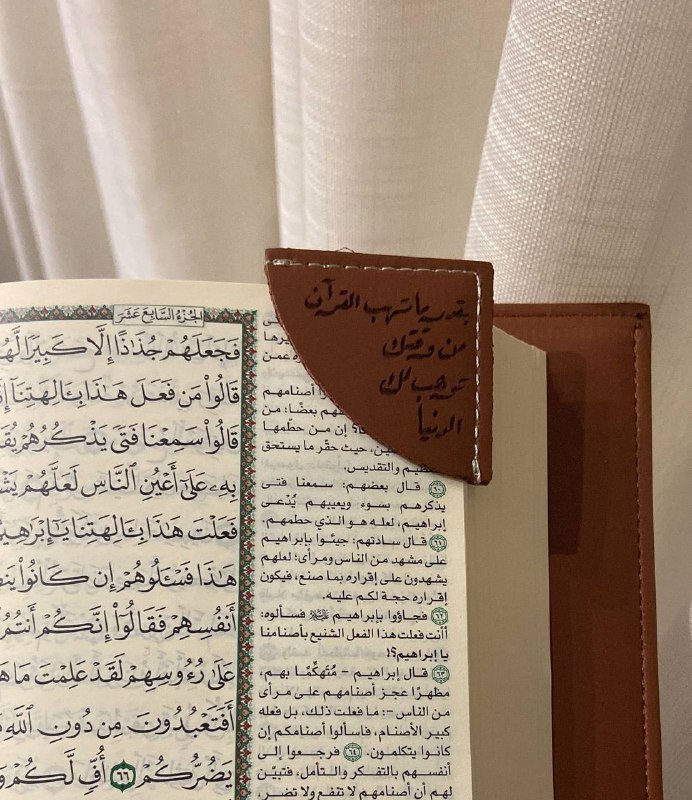 بقدر ما تهب القرآن
من وقتك
توهب لك
الدنيا
الجزء السابع عشر
فَجَعَلَهُمْ جُذَٰذًا إِلَّا كَبِيرًا
قَالُوا۟ مَن فَعَلَ هَٰذَا بِـَٔالِهَتِنَآ
قَالُوا۟ سَمِعْنَا فَتًى يَذْكُرُهُمْ
بِهِۦ عَلَىٰٓ أَعْيُنِ ٱلنَّاسِ لَعَلَّهُمْ
فَعَلْتَ هَٰذَا بِـَٔالِهَتِنَا
هَٰذَا فَسْـَٔلُوهُمْ إِن كَانُوا۟
أَنفُسِهِمْ فَقَالُوٓا۟ إِنَّكُمْ أَنتُمُ
عَلَىٰ رُءُوسِهِمْ لَقَدْ عَلِمْتَ مَا
أَفَتَعْبُدُونَ مِن دُونِ ٱللَّهِ
يَضُرُّكُمْ ٦٦ أُفٍّ لَّكُمْ
أصنامهم
بعضًا: من
إن من حطّمها
حيث حقّر ما يستحق
والتقديس.
٦٠ قال بعضهم: سمعنا فتى
يذكرهم بسوء ويعيبهم يُدْعى
إبراهيم، لعله هو الذي حطمهم.
٦١ قال سادتهم: جيئوا بإبراهيم
على مشهد من الناس ومرأى؛ لعلهم
يشهدون على إقراره بما صنع، فيكون
إقراره حجة لكم عليه.
٦٢ فجاؤوا بإبراهيم ﷺ فسألوه:
أأنت فعلت هذا الفعل الشنيع بأصنامنا
يا إبراهيم؟!
٦٣ قال إبراهيم - مُتَهكِّمًا بهم،
مظهرًا عجز أصنامهم على مرأى
من الناس -: ما فعلت ذلك، بل فعله
كبير الأصنام، فاسألوا أصنامكم إن
كانوا يتكلمون. ٦٤ فرجعوا إلى
أنفسهم بالتفكر والتأمل، فتبيّن
لهم أن أصنامهم لا تنفع ولا تضر،